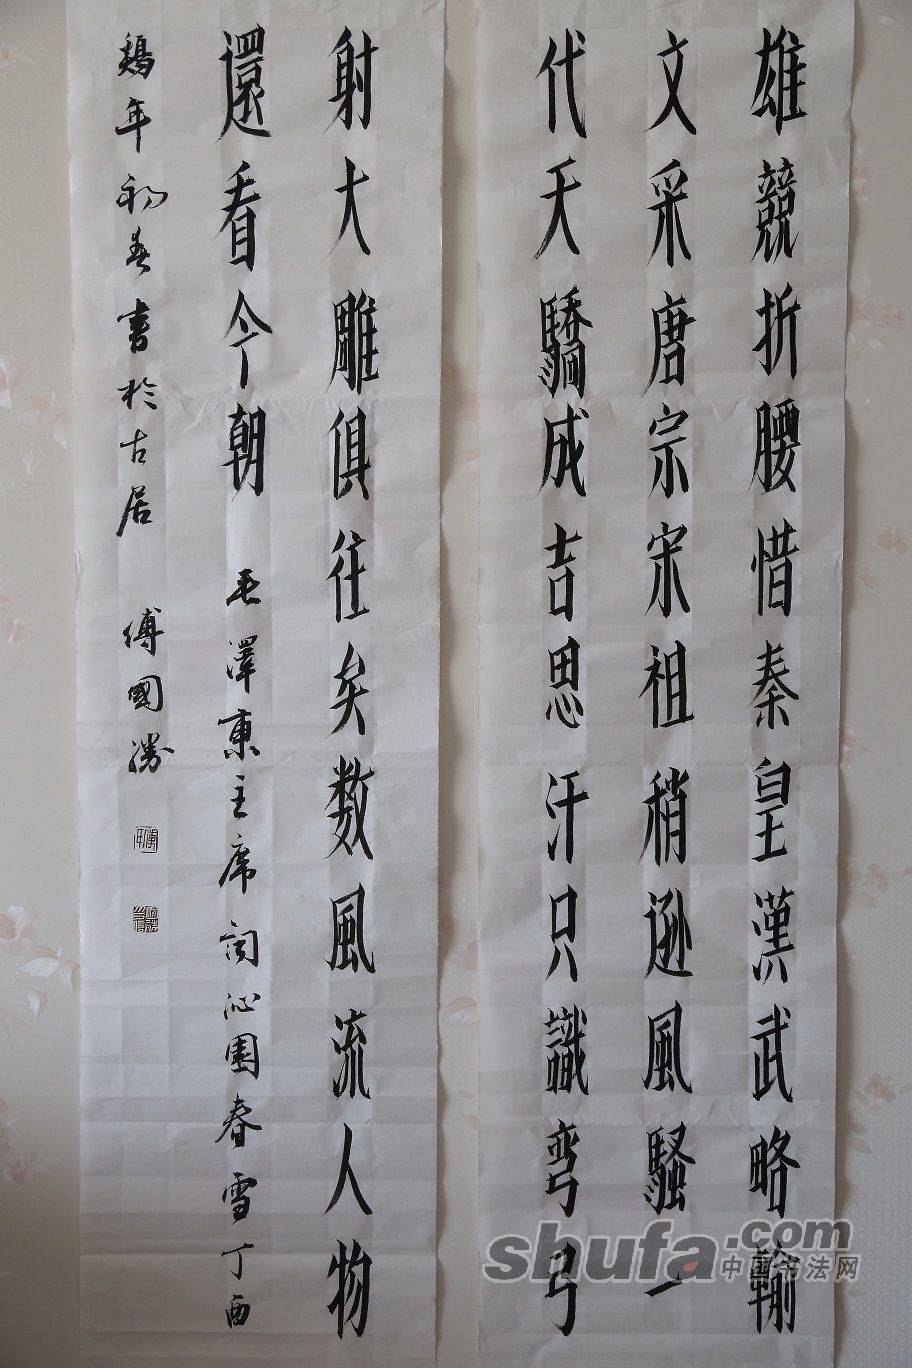 雄競折腰惜秦皇漢武略輸
文采唐宗宋祖稍遜風騷一
代天驕成吉思汗只識彎弓
射大雕俱往矣数風流人物
還看今朝 毛澤東主席詞沁園春雪丁酉
鷄年初春書於古居 傅國勝
shufa.com
中国书法网